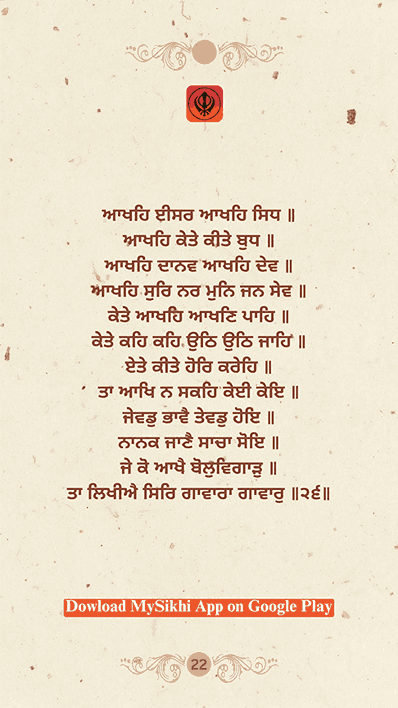 ਆਖਹਿ ਈਸਰ ਆਖਹਿ ਸਿਧ ॥
ਆਖਹਿ ਕੇਤੇ ਕੀਤੇ ਬੁਧ ॥
ਆਖਹਿ ਦਾਨਵ ਆਖਹਿ ਦੇਵ ॥
ਆਖਹਿ ਸੁਰਿ ਨਰ ਮੁਨਿ ਜਨ ਸੇਵ ॥
ਕੇਤੇ ਆਖਹਿ ਆਖਣਿ ਪਾਹਿ ॥
ਕੇਤੇ ਕਹਿ ਕਹਿ ਉਠਿ ਉਠਿ ਜਾਹਿ ॥
ਏਤੇ ਕੀਤੇ ਹੋਰਿ ਕਰੇਹਿ ॥
ਤਾ ਆਖਿ ਨ ਸਕਹਿ ਕੇਈ ਕੇਇ ॥
ਜੇਵਡੁ ਭਾਵੈ ਤੇਵਡੁ ਹੋਇ ॥
ਨਾਨਕ ਜਾਣੈ ਸਾਚਾ ਸੋਇ ॥
ਜੇ ਕੋ ਆਖੈ ਬੋਲੁਵਿਗਾੜੁ ॥
ਤਾ ਲਿਖੀਐ ਸਿਰਿ ਗਾਵਾਰਾ ਗਾਵਾਰੁ ॥੨੬॥
Dowload MySikhi App on Google Play
22